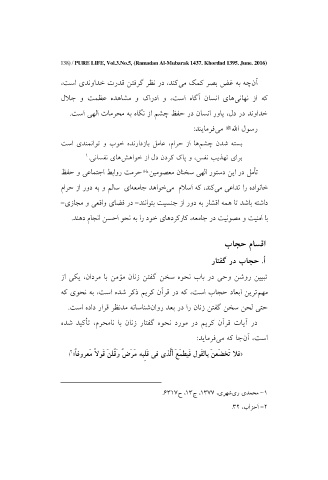 138) / PURE LIFE, Vol.3.No.5, (Ramadan Al-Mubarak 1437. Khordad 1395. June. 2016)
آن‌چه به غض بصر کمک می‌کند، در نظر گرفتن قدرت خداوندی است،
که از نهانی‌های انسان آگاه است، و ادراک و مشاهده عظمت و جلال
خداوند در دل، یاور انسان در حفظ چشم از نگاه به محرمات الهی است.
رسول الله می‌فرمایند:
بسته شدن چشم‌ها از حرام، عامل بازدارنده خوب و توانمندی است
برای تهذیب نفس، و پاک کردن دل از خواهش‌های نفسانی.۱
تأمل در این دستور الهی سخنان معصومین حرمت روابط اجتماعی و حفظ
خانواده را تداعی می‌کند، که اسلام می‌خواهد جامعه‌ای سالم و به دور از حرام
داشته باشد تا همه اقشار به دور از جنسیت بتوانند- در فضای واقعی و مجازی-
با امنیت و مصونیت در جامعه، کارکردهای خود را به نحو احسن انجام دهند.
اقسام حجاب
أ. حجاب در گفتار
تبیین روشن وحی در باب نحوه سخن گفتن زنان مؤمن با مردان، یکی از
مهم‌ترین ابعاد حجاب است، که در قرآن کریم ذکر شده است، به نحوی که
حتی لحن سخن گفتن زنان را در بعد روان‌شناسانه مدنظر قرار داده است.
در آیات قرآن کریم در مورد نحوه گفتار زنان با نامحرم، تأکید شده
است، آن‌جا که می‌فرماید:
«فَلا تَخْضَعْنَ بِالْقَوْلِ فَيَطْمَعَ الَّذي في قَلْبِهِ مَرَضٌ وَقُلْنَ قَوْلاً مَعْرُوفاً»۲
۱- محمدی ری‌شهری، ۱۳۷۷، ج۱۳، ح۶۳۱۷.
۲- احزاب، ۳۲.